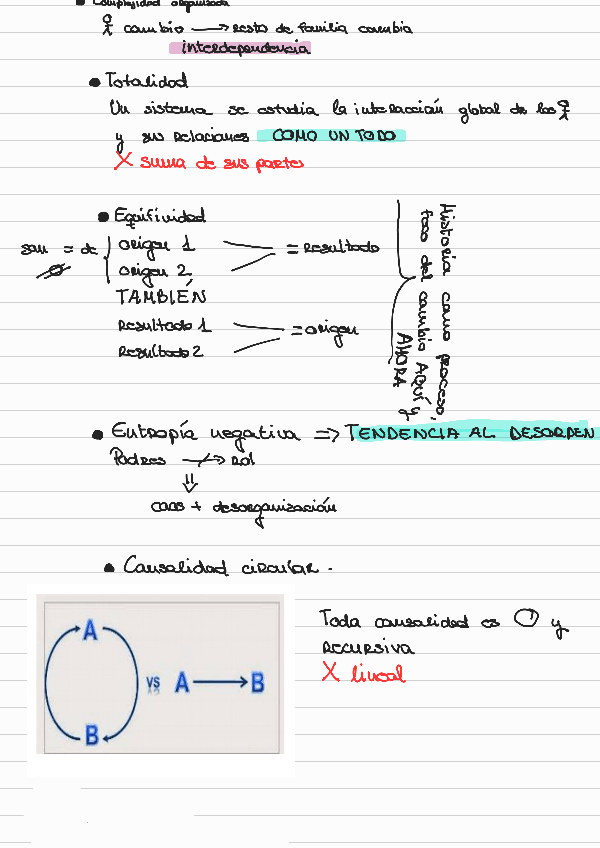 • Complejidad organizada
cambio → resto de familia cambia
interdependencia
• Totalidad
Un sistema se estudia la interacción global de los
y sus relaciones COMO UN TODO
X suma de sus partes
• Equifividad
= de origen 1 = resultado
origen 2
TAMBIÉN
Resultado 1 = origen
Resultado 2
Historia como proceso,
foco del cambio AQUÍ y
AHORA
• Entropía negativa => TENDENCIA AL DESORDEN
Padres → rol
caos + desorganización
• Causalidad circular.
A
B
vs A → B
Toda causalidad es y
recursiva
X lineal